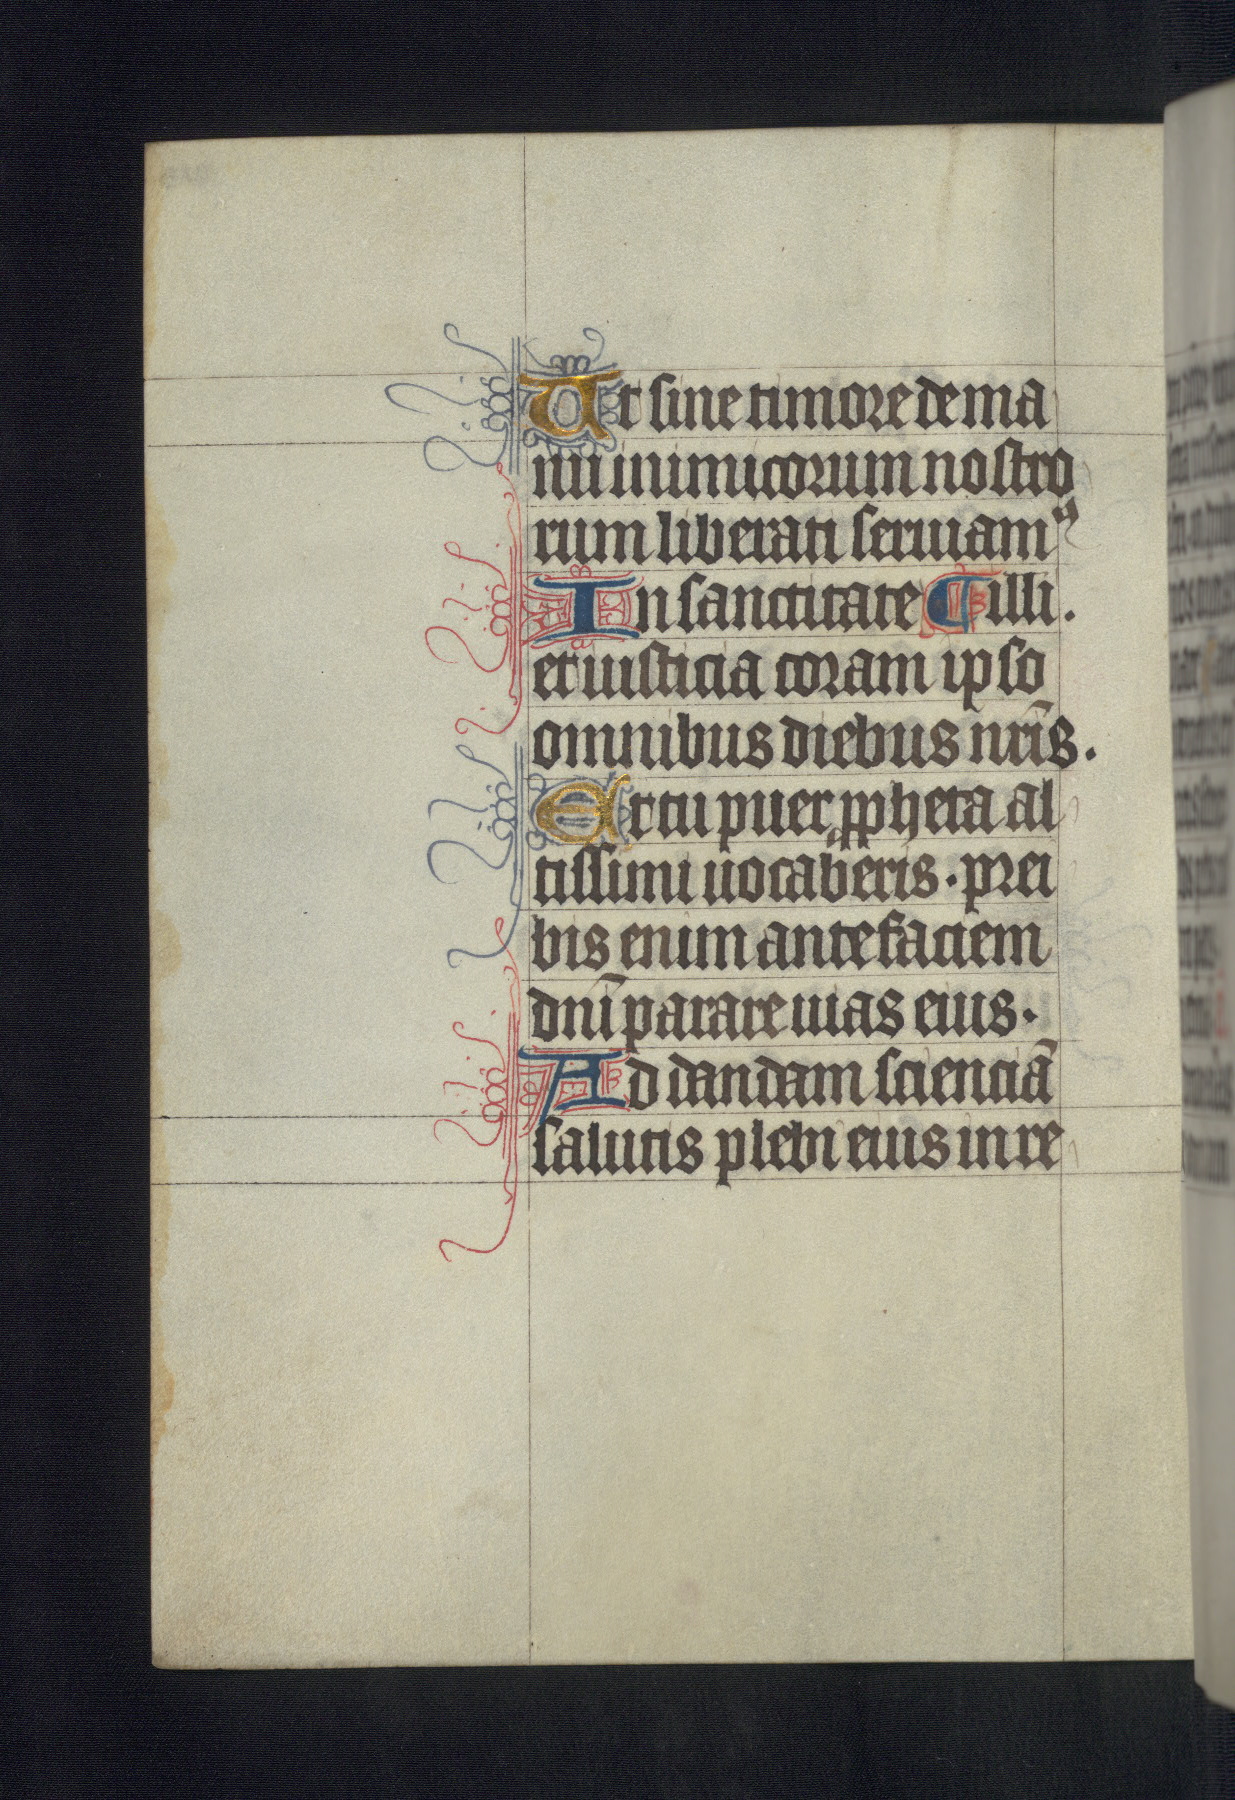 Ut sine timore de ma
nu inimicorum nostro
rum liberati seruiamꝰ
In sanctitate ¶ illi.
et iusticia coram ipso
omnibus diebus nr̃is.
Et tu puer ppheta al
tissimi uocab̃eris. prei
bis enim ante faciem
dnĩ parare uias eius.
Ad dandam scienciã
salutis plebi eius in re